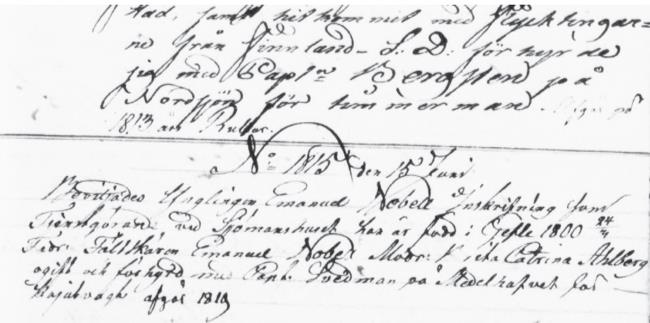 stad, samt hitkommit med Flycktingar=
ne från Finnland – S. D. förhyrdes
sig med Capt:n Bergsten på
Nordsjön för timmerman. Afgår på
1813 års Rullor.
No 1815 den 15 Juni
Beviljades Ynglingen Emanuel Nobell Inskrifning som
Tjenstgörande vid Sjömanshuset han är född i Gefle 1800 24/3
Fader Fältskären Emanuel Nobel Moder: Catrina Ahlberg
ogift och förhyrd med Capt: Svedman på Medelhafvet för
Kajutvagt afgår 1819